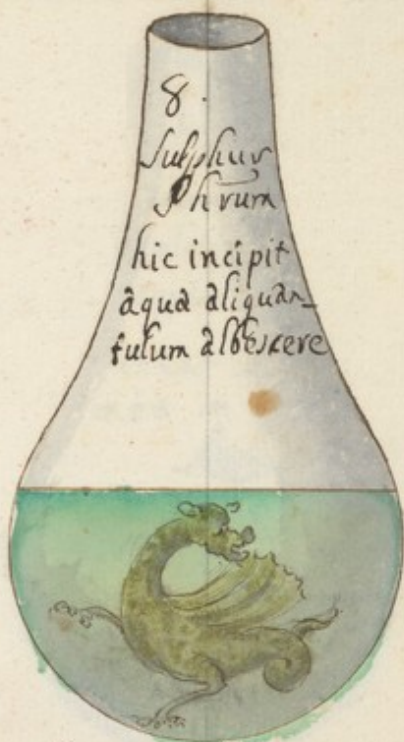 8.
Sulphur
Phrum
hic incipit
aqua aliquan_
tulum albescere